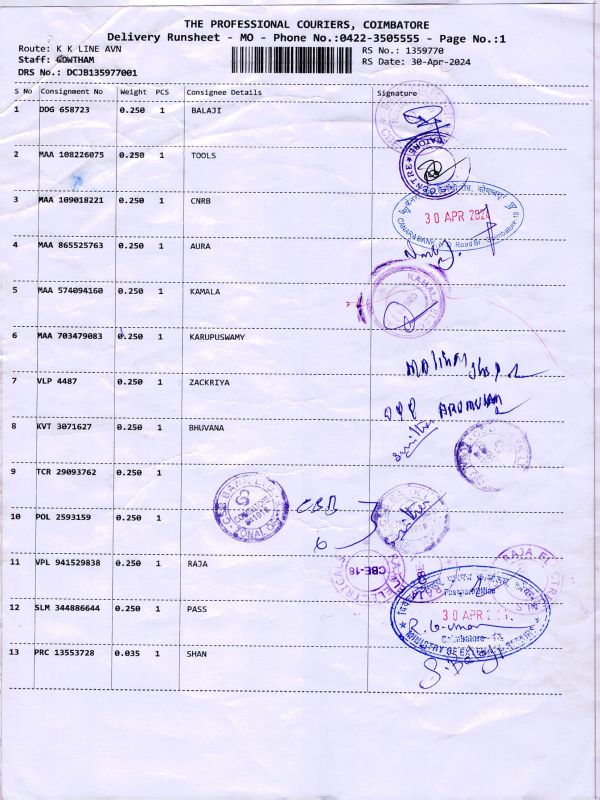 THE PROFESSIONAL COURIERS, COIMBATORE
Delivery Runsheet - MO - Phone No.:0422-3505555 - Page No.:1
Route: K K LINE AVN RS No.: 1359770
Staff: GOWTHAM RS Date: 30-Apr-2024
DRS No.: DCJB135977001
S No Consignment No Weight PCS Consignee Details Signature
1 DDG 658723 0.250 1 BALAJI
2 MAA 108226075 0.250 1 TOOLS
3 MAA 109018221 0.250 1 CNRB
30 APR 2024
CANARA BANK
4 MAA 865525763 0.250 1 AURA
5 MAA 574094160 0.250 1 KAMALA
KAMALA
6 MAA 703479083 0.250 1 KARUPUSWAMY
7 VLP 4487 0.250 1 ZACKRIYA
ARUMUGAM
8 KVT 3071627 0.250 1 BHUVANA
9 TCR 29093762 0.250 1
CSB BANK
ZONAL OF
10 POL 2593159 0.250 1
11 VPL 941529838 0.250 1 RAJA
CBE-18
RAJA ELECTRI
12 SLM 344886644 0.250 1 PASS
Passport Office
30 APR
Coimbatore
MINISTRY OF EXTERNAL AFFAIRS
13 PRC 13553728 0.035 1 SHAN